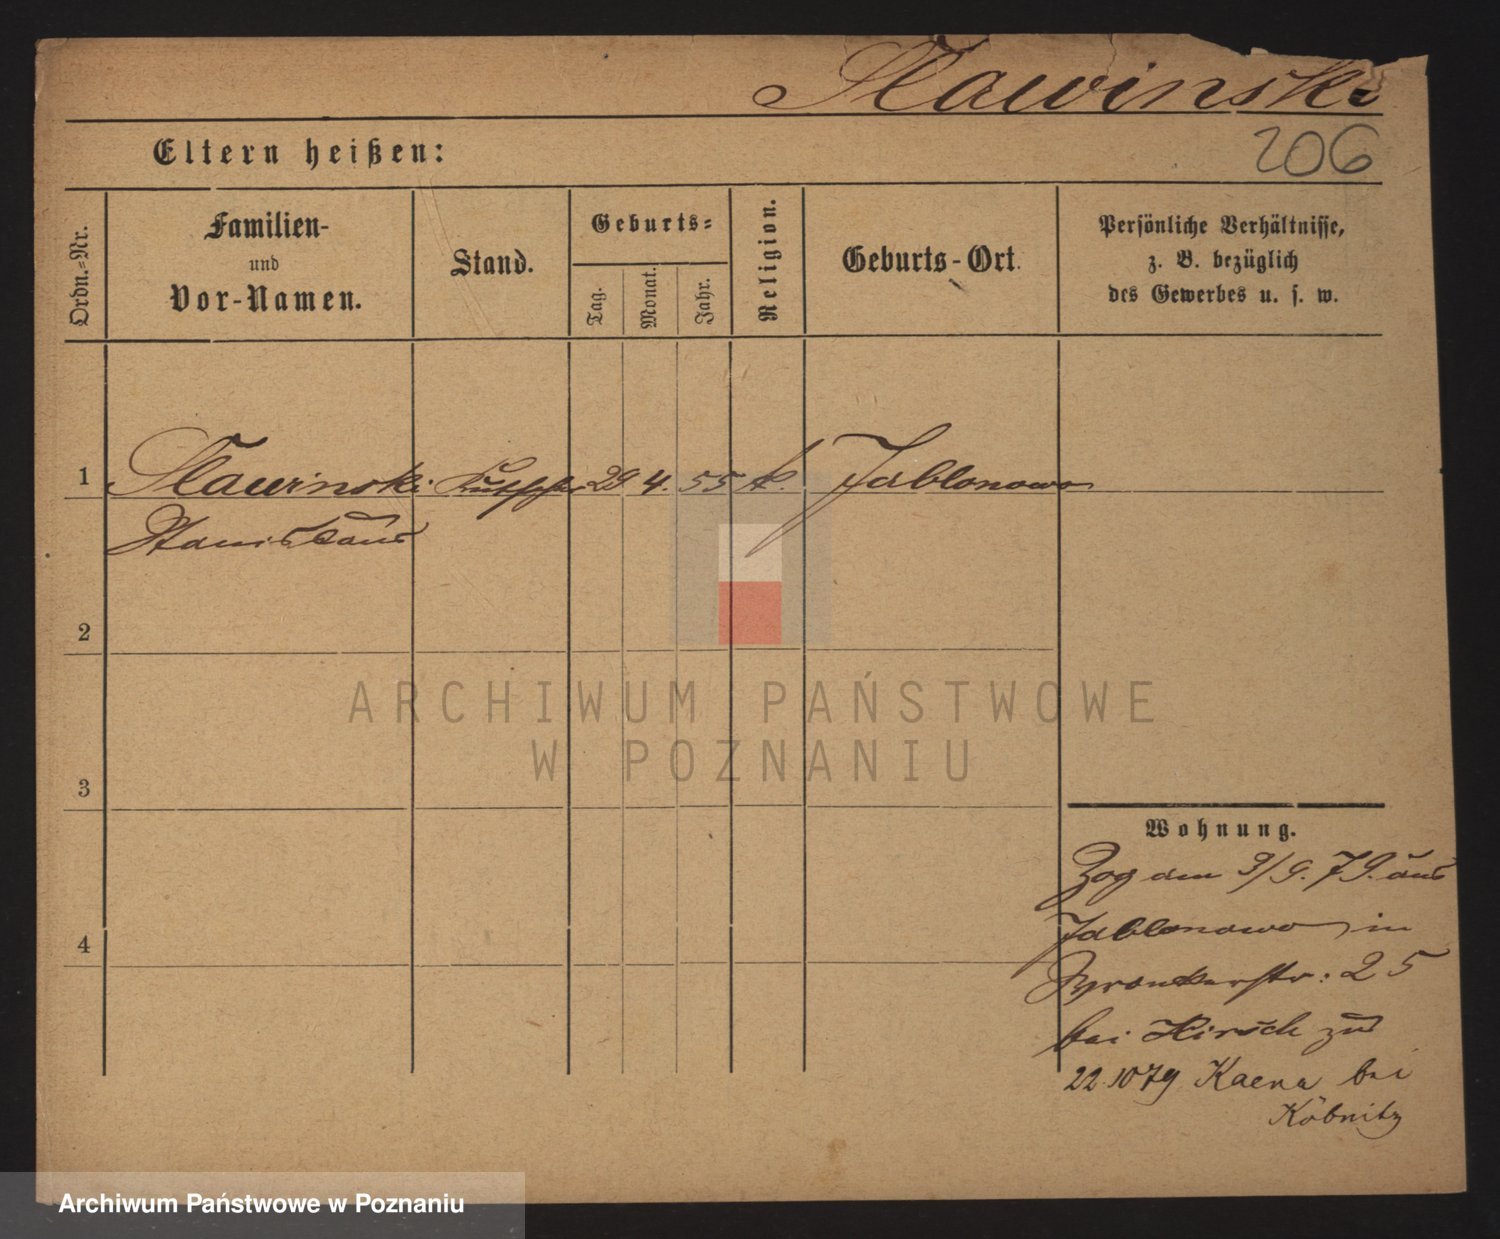 Slawinski
206
Eltern heißen:
Ordn.-Nr.
Familien-
und
Vor-Namen.
Stand.
Geburts-
Tag.
Monat.
Jahr.
Religion.
Geburts-Ort.
Persönliche Verhältnisse,
z. B. bezüglich
des Gewerbes u. s. w.
1 Slawinski Kutscher 29 4. 55 k. Jablonowo
Stanislaus
2
ARCHIWUM PAŃSTWOWE
W POZNANIU
3
Wohnung.
Zog am 3/9. 79. aus
4
Jablonowo in
Wronkerstr: 25
bei Hirsch zu
22.10 79 bei
Köbnitz
Archiwum Państwowe w Poznaniu